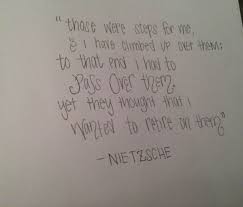 "those were steps for me,
& i have climbed up over them:
to that end i had to
pass over them.
yet they thought that i
wanted to retire on them"
-NIETZSCHE